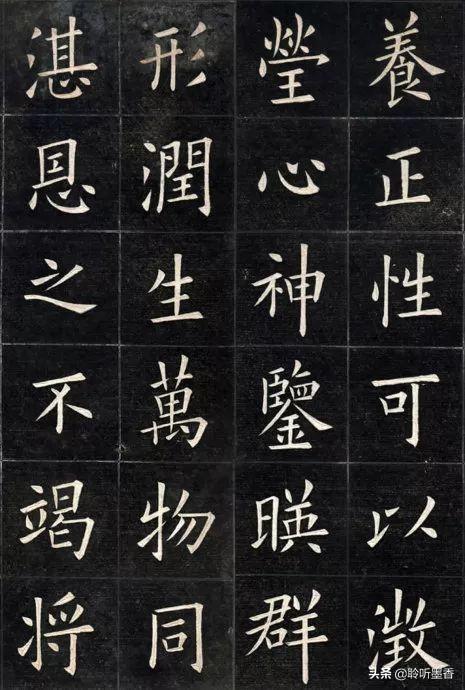 養正性可以澂
瑩心神鑒暎群
形潤生萬物同
湛恩之不竭將
头条 @聆听墨香